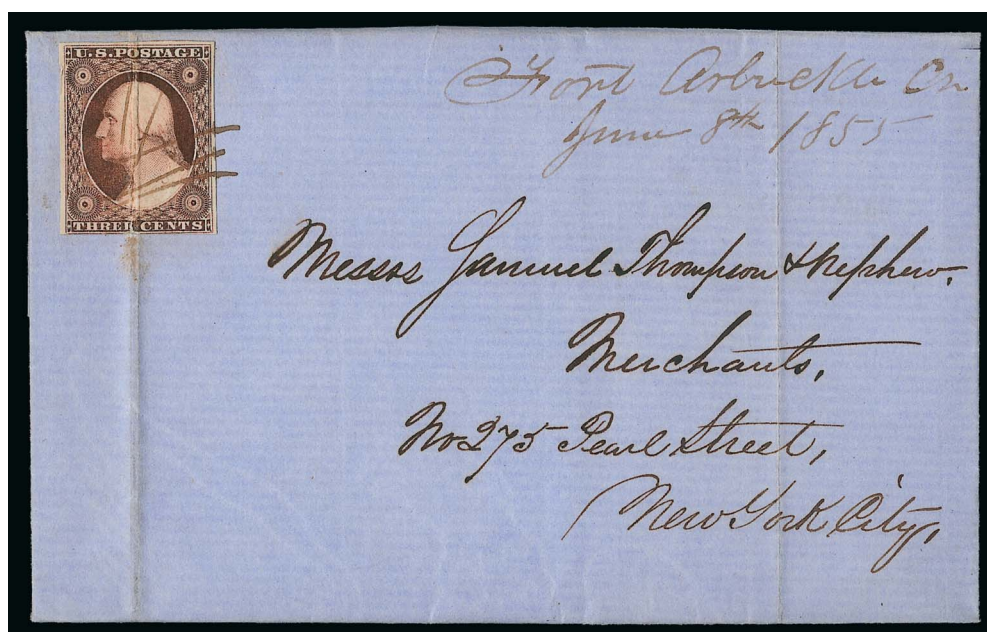 U.S. POSTAGE
THREE CENTS
Fort Arbuckle CN
June 8th 1855
Messrs Samuel Thompson & Nephew.
Merchants,
No 275 Pearl Street,
New York City,